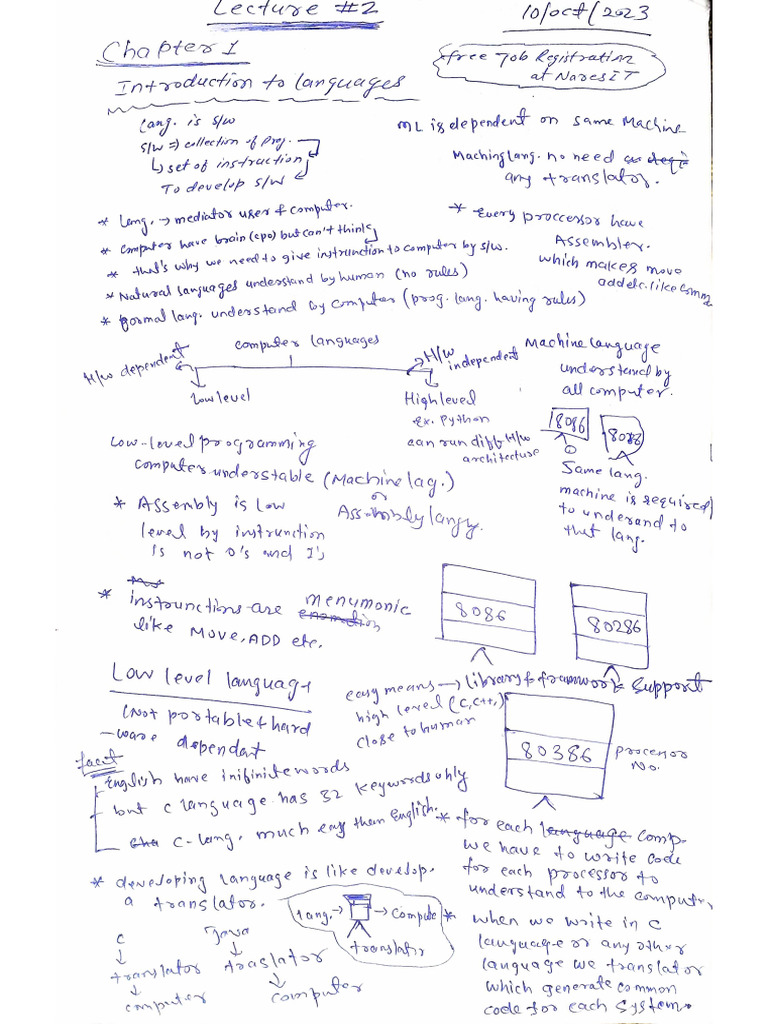 Lecture #2
10/oct/2023
Chapter 1
free Job Registration
at NaresIT
Introduction to languages
Lang. is s/w
s/w => collection of prog.
↳ set of instruction
To develop s/w
ML is dependent on same Machine
Maching lang. no need
any translator.
* Lang. → mediator user & computer.
* Computer have brain (cpu) but can't think
* that's why we need to give instrunction to computer by s/w.
* Natural languages understand by human (no rules)
* formal lang. understand by computer (prog. lang. having rules)
* Every proccersor have
Assembler.
which makes move
add etc. like comm
computer languages
H/w dependent
H/w
independent
Low level
High level
ex. Python
can run diff H/w
architecture
Machine language
understand by
all computer.
8086
8088
Same lang.
machine is required
to underand to
that lang.
Low-level programming
computer understable (Machine lag.)
or
Assembly langy.
* Assembly is low
level by instrunction
is not 0's and 1's
* instrunctions are menymonic
like MOVE, ADD etc.
8086
80286
Low level language
(Not portable & hard
-ware dependat
easy means → library & framwork support
high level (C, C++,)
close to human
80386
processor
No.
fact
English have inifinite words
but C language has 32 keywords only
C-lang. much easy than English.
* developing language is like develop.
a translator.
lang. → → Compute
translatir
C
↓
translator
↓
computer
Java
↓
traslator
↓
computer
* for each language comp.
we have to write code
for each processor to
understand to the computer,
* when we write in C
language or any other
language we translator
which generate common
code for each system.